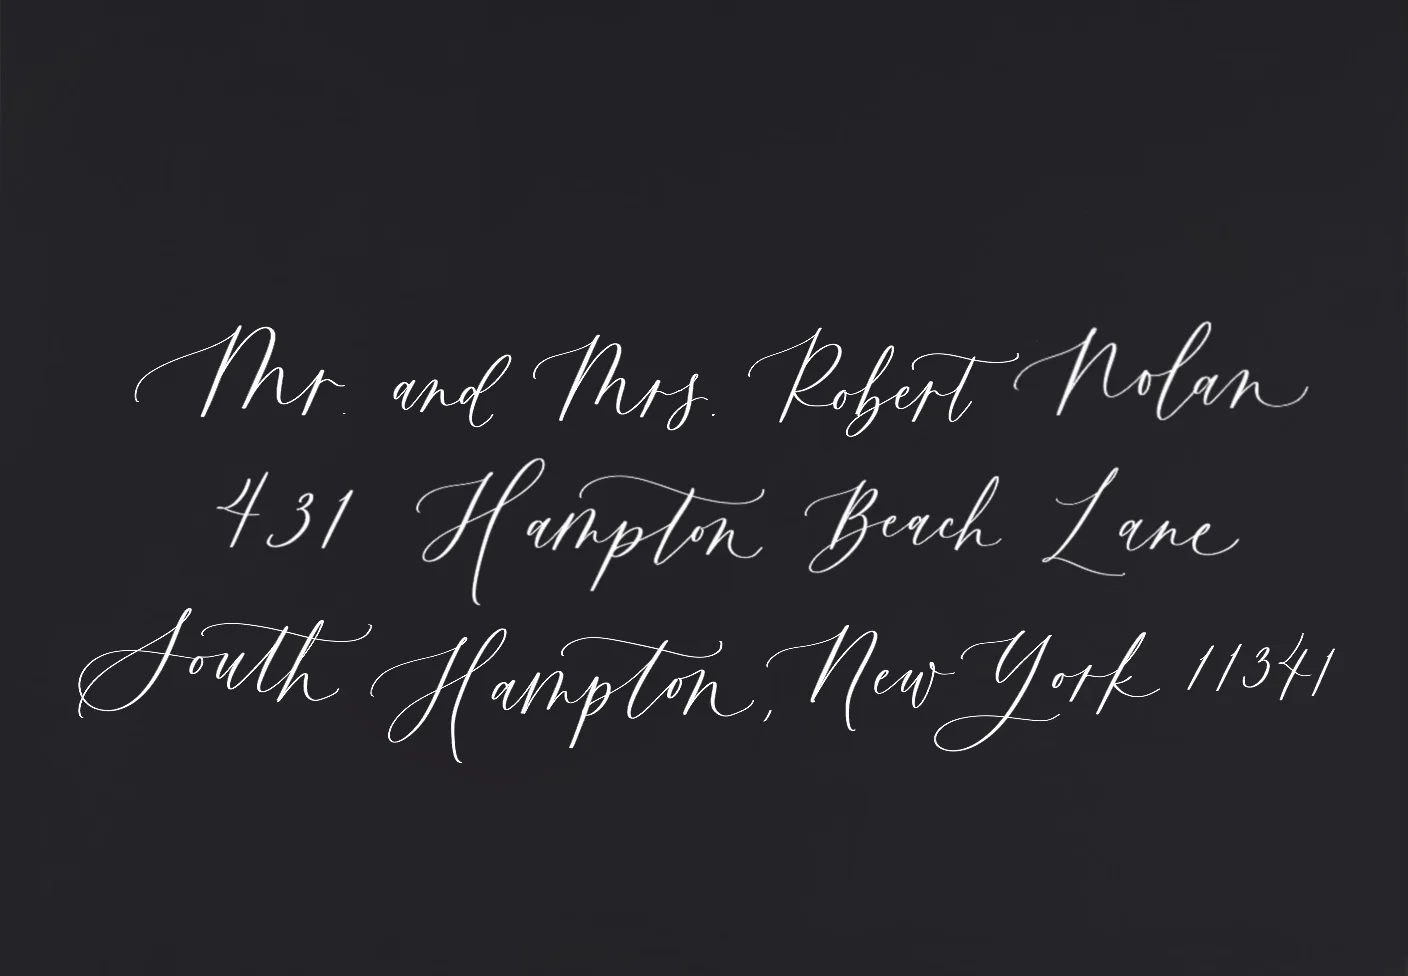 Mr. and Mrs. Robert Nolan
431 Hampton Beach Lane
South Hampton, New York 11341